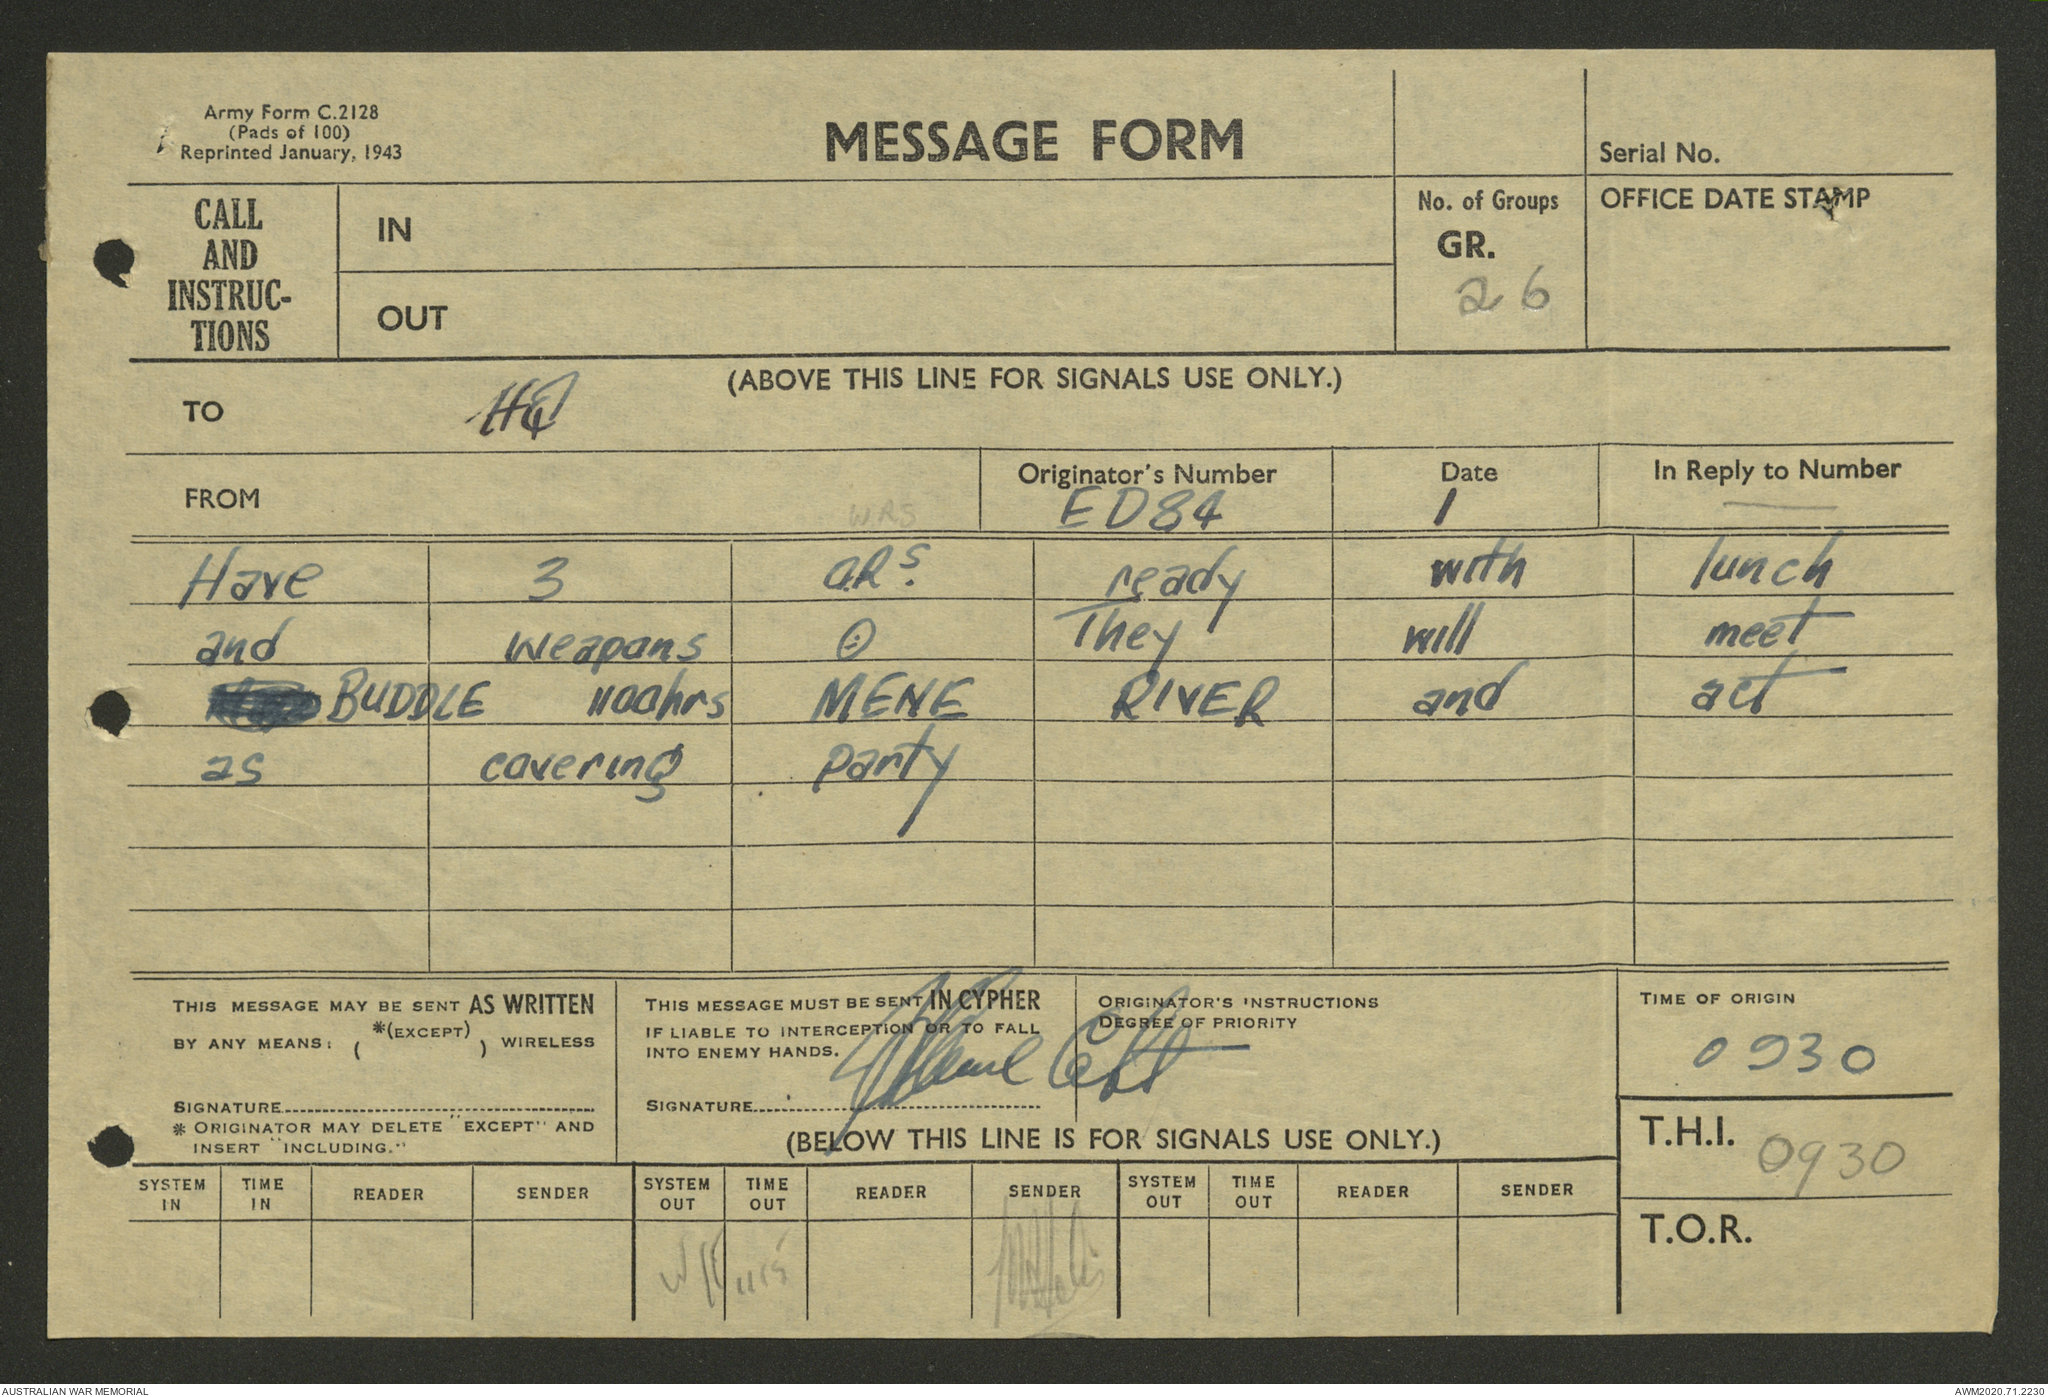 Army Form C.2128
(Pads of 100)
Reprinted January, 1943
MESSAGE FORM
Serial No.
CALL AND INSTRUC-TIONS
IN
OUT
No. of Groups
GR.
26
OFFICE DATE STAMP
(ABOVE THIS LINE FOR SIGNALS USE ONLY.)
TO HQ
FROM
Originator's Number
ED84
Date
1
In Reply to Number
—
WRS
Have 3 O.Rs. ready with lunch
and weapons ⊙ They will meet
BUDDLE 1100hrs MENE RIVER and act
as covering party
THIS MESSAGE MAY BE SENT AS WRITTEN
BY ANY MEANS: ( *(EXCEPT) ) WIRELESS
SIGNATURE
* ORIGINATOR MAY DELETE "EXCEPT" AND
INSERT "INCLUDING."
THIS MESSAGE MUST BE SENT IN CYPHER
IF LIABLE TO INTERCEPTION OR TO FALL
INTO ENEMY HANDS.
SIGNATURE
ORIGINATOR'S INSTRUCTIONS
DEGREE OF PRIORITY
TIME OF ORIGIN
0930
T.H.I. 0930
T.O.R.
(BELOW THIS LINE IS FOR SIGNALS USE ONLY.)
SYSTEM IN TIME IN READER SENDER SYSTEM OUT TIME OUT READER SENDER SYSTEM OUT TIME OUT READER SENDER
1115
AUSTRALIAN WAR MEMORIAL
AWM2020.71.2230